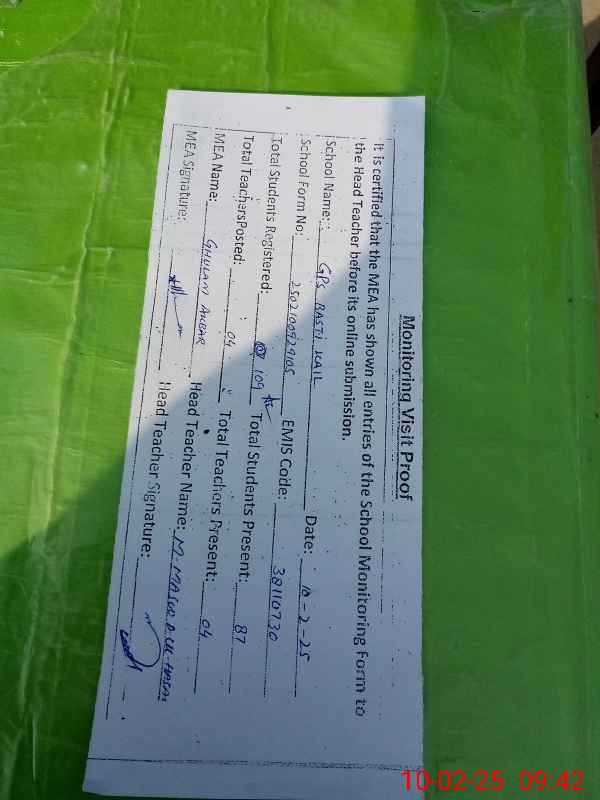 Monitoring Visit Proof
It is certified that the MEA has shown all entries of the School Monitoring Form to
the Head Teacher before its online submission.
School Name: GPS BASTI KAIL Date: 10-2-25
School Form No: EMIS Code: 38110730
Total Students Registered: 109 Total Students Present: 87
Total Teachers Posted: 04 Total Teachers Present: 04
MEA Name: GHULAM AKBAR Head Teacher Name: M. MASOOD UL
MEA Signature: Head Teacher Signature:
10-02-25 09:42